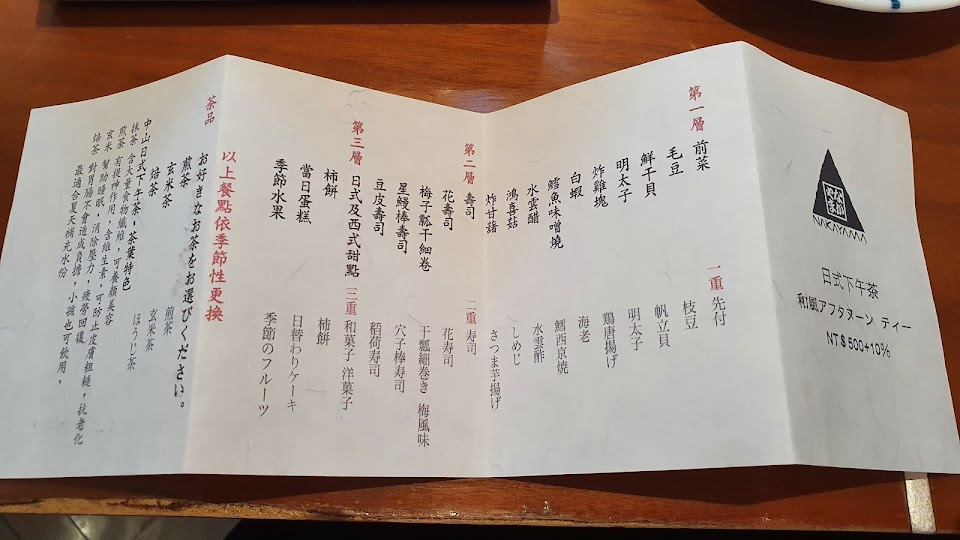 NAKAYAMA
日式下午茶
和風アフタヌーン ティー
NT$500+10%
第一層 前菜 一重 先付
毛豆 枝豆
鮮干貝 帆立貝
明太子 明太子
炸雞塊 鶏唐揚げ
白蝦 海老
鱈魚味噌燒 鱈西京焼
水雲醋 水雲酢
鴻喜菇 しめじ
炸甘藷 さつま芋揚げ
第二層 壽司 二重 寿司
花壽司 花寿司
梅子瓢干細卷 干瓢細巻き 梅風味
星鰻棒壽司 穴子棒寿司
豆皮壽司 稻荷寿司
第三層 日式及西式甜點 三重 和菓子 洋菓子
柿餅 柿餅
當日蛋糕 日替わりケーキ
季節水果 季節のフルーツ
以上餐點依季節性更換
茶品 お好きなお茶をお選びください。
煎茶 煎茶
玄米茶 玄米茶
焙茶 ほうじ茶
中山日式下午茶，茶葉特色
抹茶 含大量食物纖維，可養顏美容
煎茶 有提神作用，含維生素，可防止皮膚粗糙，抗老化
玄米 幫助睡眠，消除壓力，疲勞回復
焙茶 對胃腸不會造成負擔，小孩也可飲用，
最適合夏天補充水份